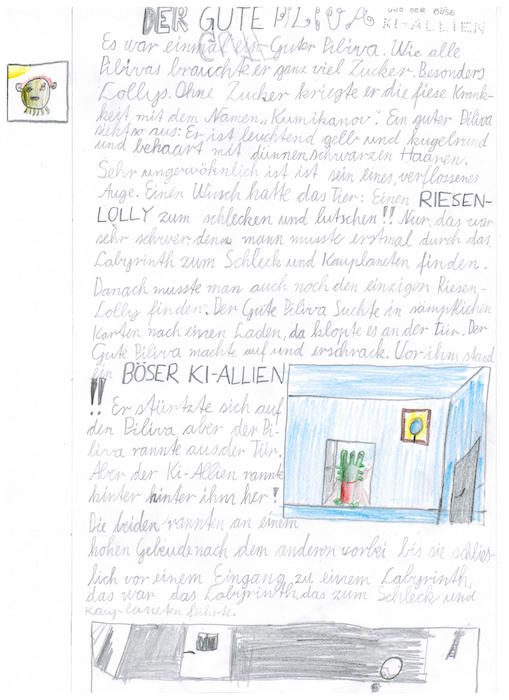 DER GUTE PILIVA UND DER BÖSE
KI-ALLIEN
Es war einmal ein Guter Piliva. Wie alle
Pilivas brauchte er ganz viel Zucker. Besonders
Lollys. Ohne Zucker kriegte er die fiese Krank-
keit mit dem Namen „Kumikanov". Ein guter Piliva
sieht so aus: Er ist leuchtend gelb und kugelrund
und behaart mit dünnen schwarzen Haaren.
Sehr ungewöhnlich ist ist sein eines, verflossenes
Auge. Einen Wusch hatte das Tier: Einen RIESEN-
LOLLY zum schlecken und lutschen!! Nur, das war
sehr schwer, denn mann musste erstmal durch das
Labyrinth zum Schleck und Kauplaneten finden.
Danach musste man auch noch den einzigen Riesen-
Lolly finden. Der Gute Piliva Suchte in sämptlichen
Karten nach einen Laden, da klopte es an der Tür. Der
Gute Piliva machte auf und erschrack. Vor ihm stand
ein BÖSER KI-ALLIEN
!! Er stürtzte sich auf
den Piliva aber der Pi-
liva rannte aus der Tür.
Aber der Ki-Allien rannte
hinter hinter ihm her!
Die beiden rannten an einem
hohen Gebeude nach dem anderen vorbei bis sie schlies-
lich vor einem Eingang zu einem Labyrinth,
das war das Labyrinth, das zum Schleck und
Kauplaneten führte.